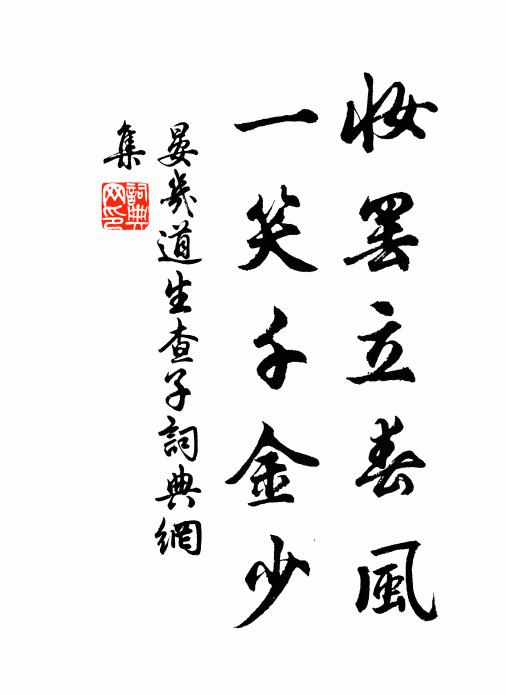 妝罷立春風
一笑千金少
晏幾道生查子詞典網
集
詞典网印